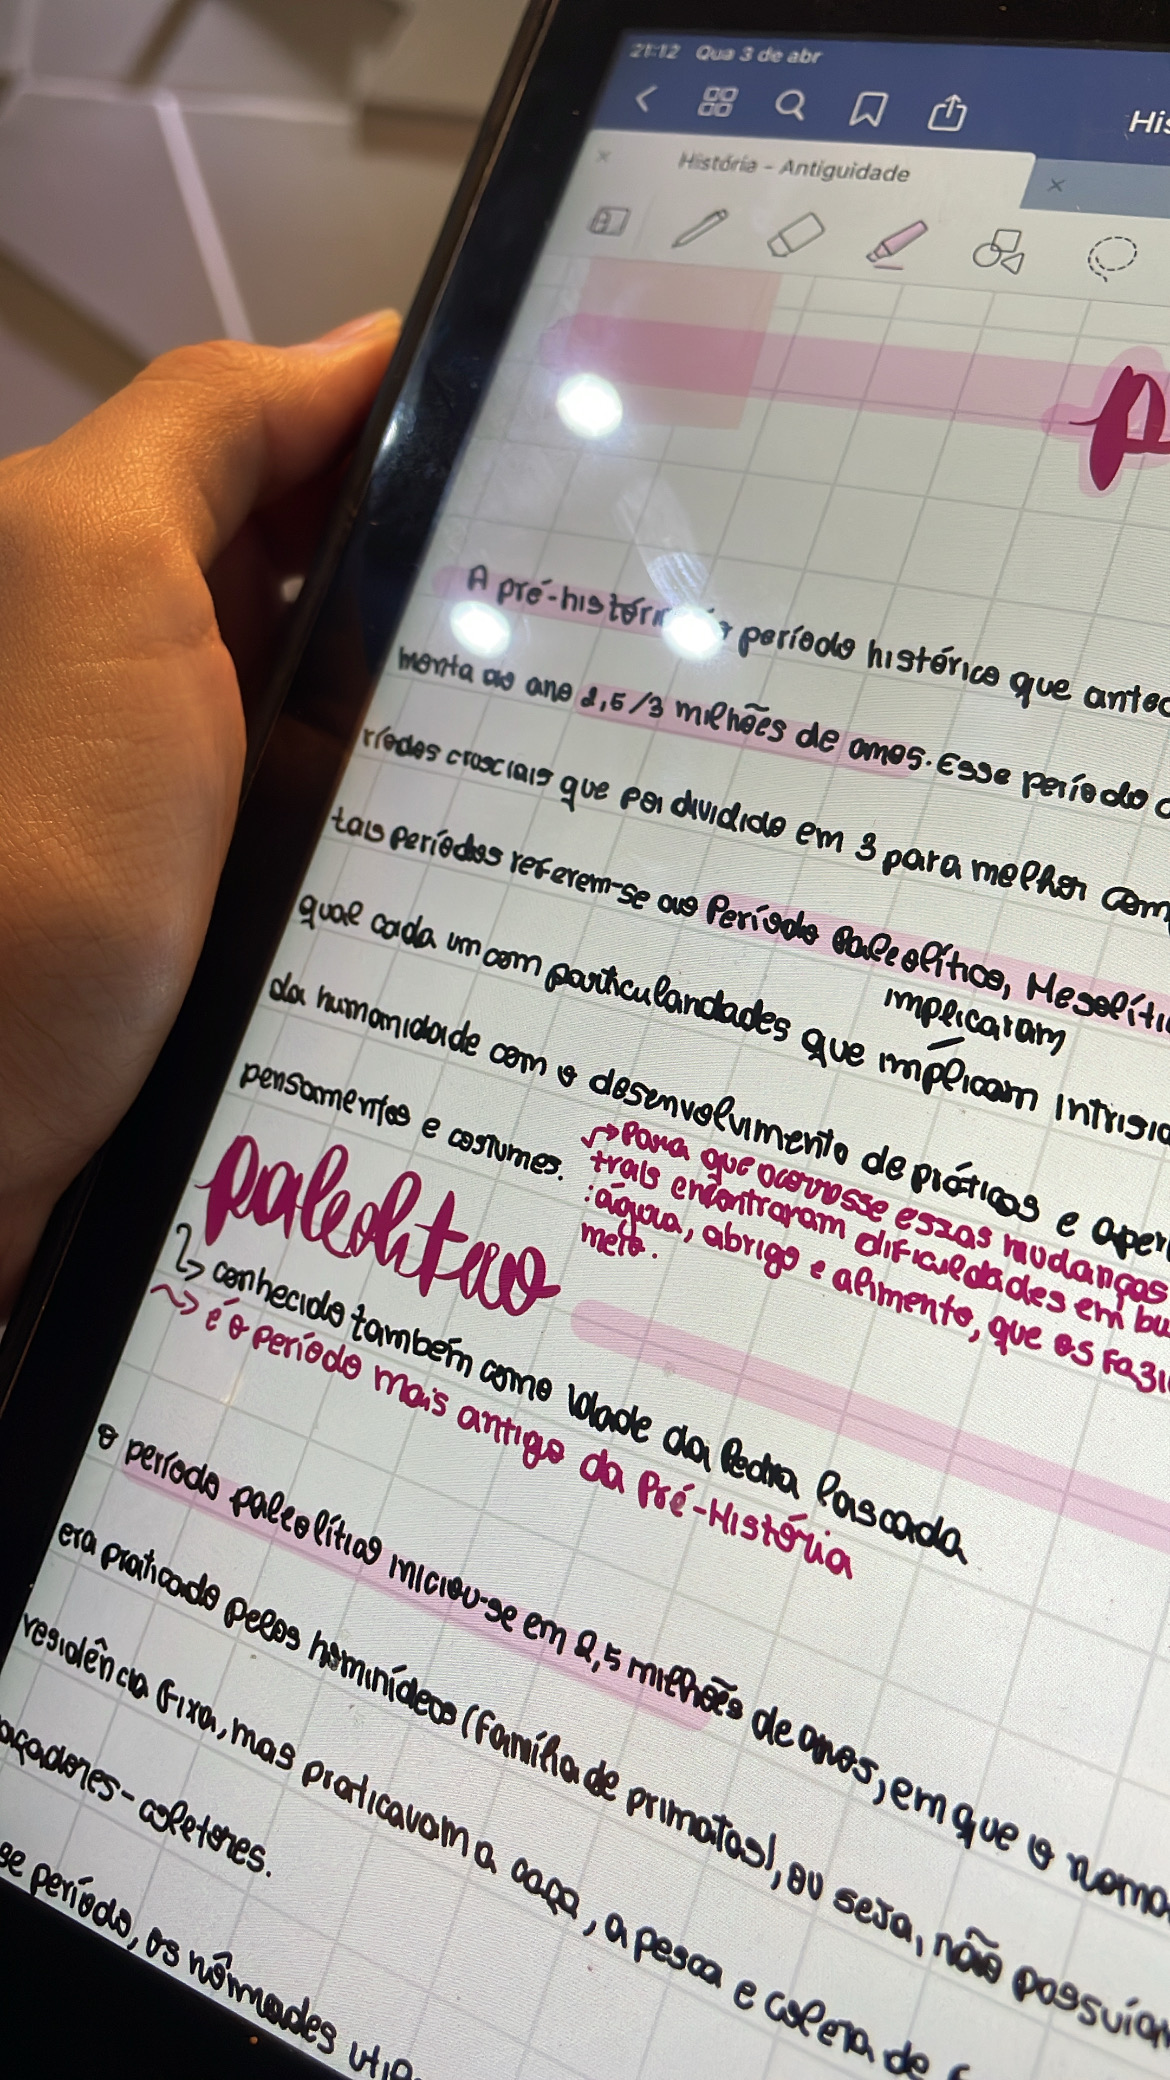 21:12 Qua 3 de abr
His
História - Antiguidade
P
A pré-históri período histórico que antec
monta ao ano 2,5/3 milhões de anos. Esse período
ríodos cruciais que foi dividido em 3 para melhor com
tais períodos referem-se aos Período Paleolítico, Mesolíti
implicaram
qual cada um com particularidades que implicam intrisi
da humanidade com o desenvolvimento de práticas e aper
pensamentos e costumes.
→ Para que ocorresse essas mudanças
trais encontraram dificuldades em bu
: água, abrigo e alimento, que os fazi
meio.
paleolítico
↳ conhecido também como Idade da Pedra Lascada
~> é o período mais antigo da Pré-História
o período paleolítico iniciou-se em 2,5 milhões de anos, em que o noma
era praticado pelos hominídeos (família de primatas), ou seja, não possuíam
residência fixa, mas praticavam a caça, a pesca e coleta de f
açadores-coletores.
se período, os nômades utiliz